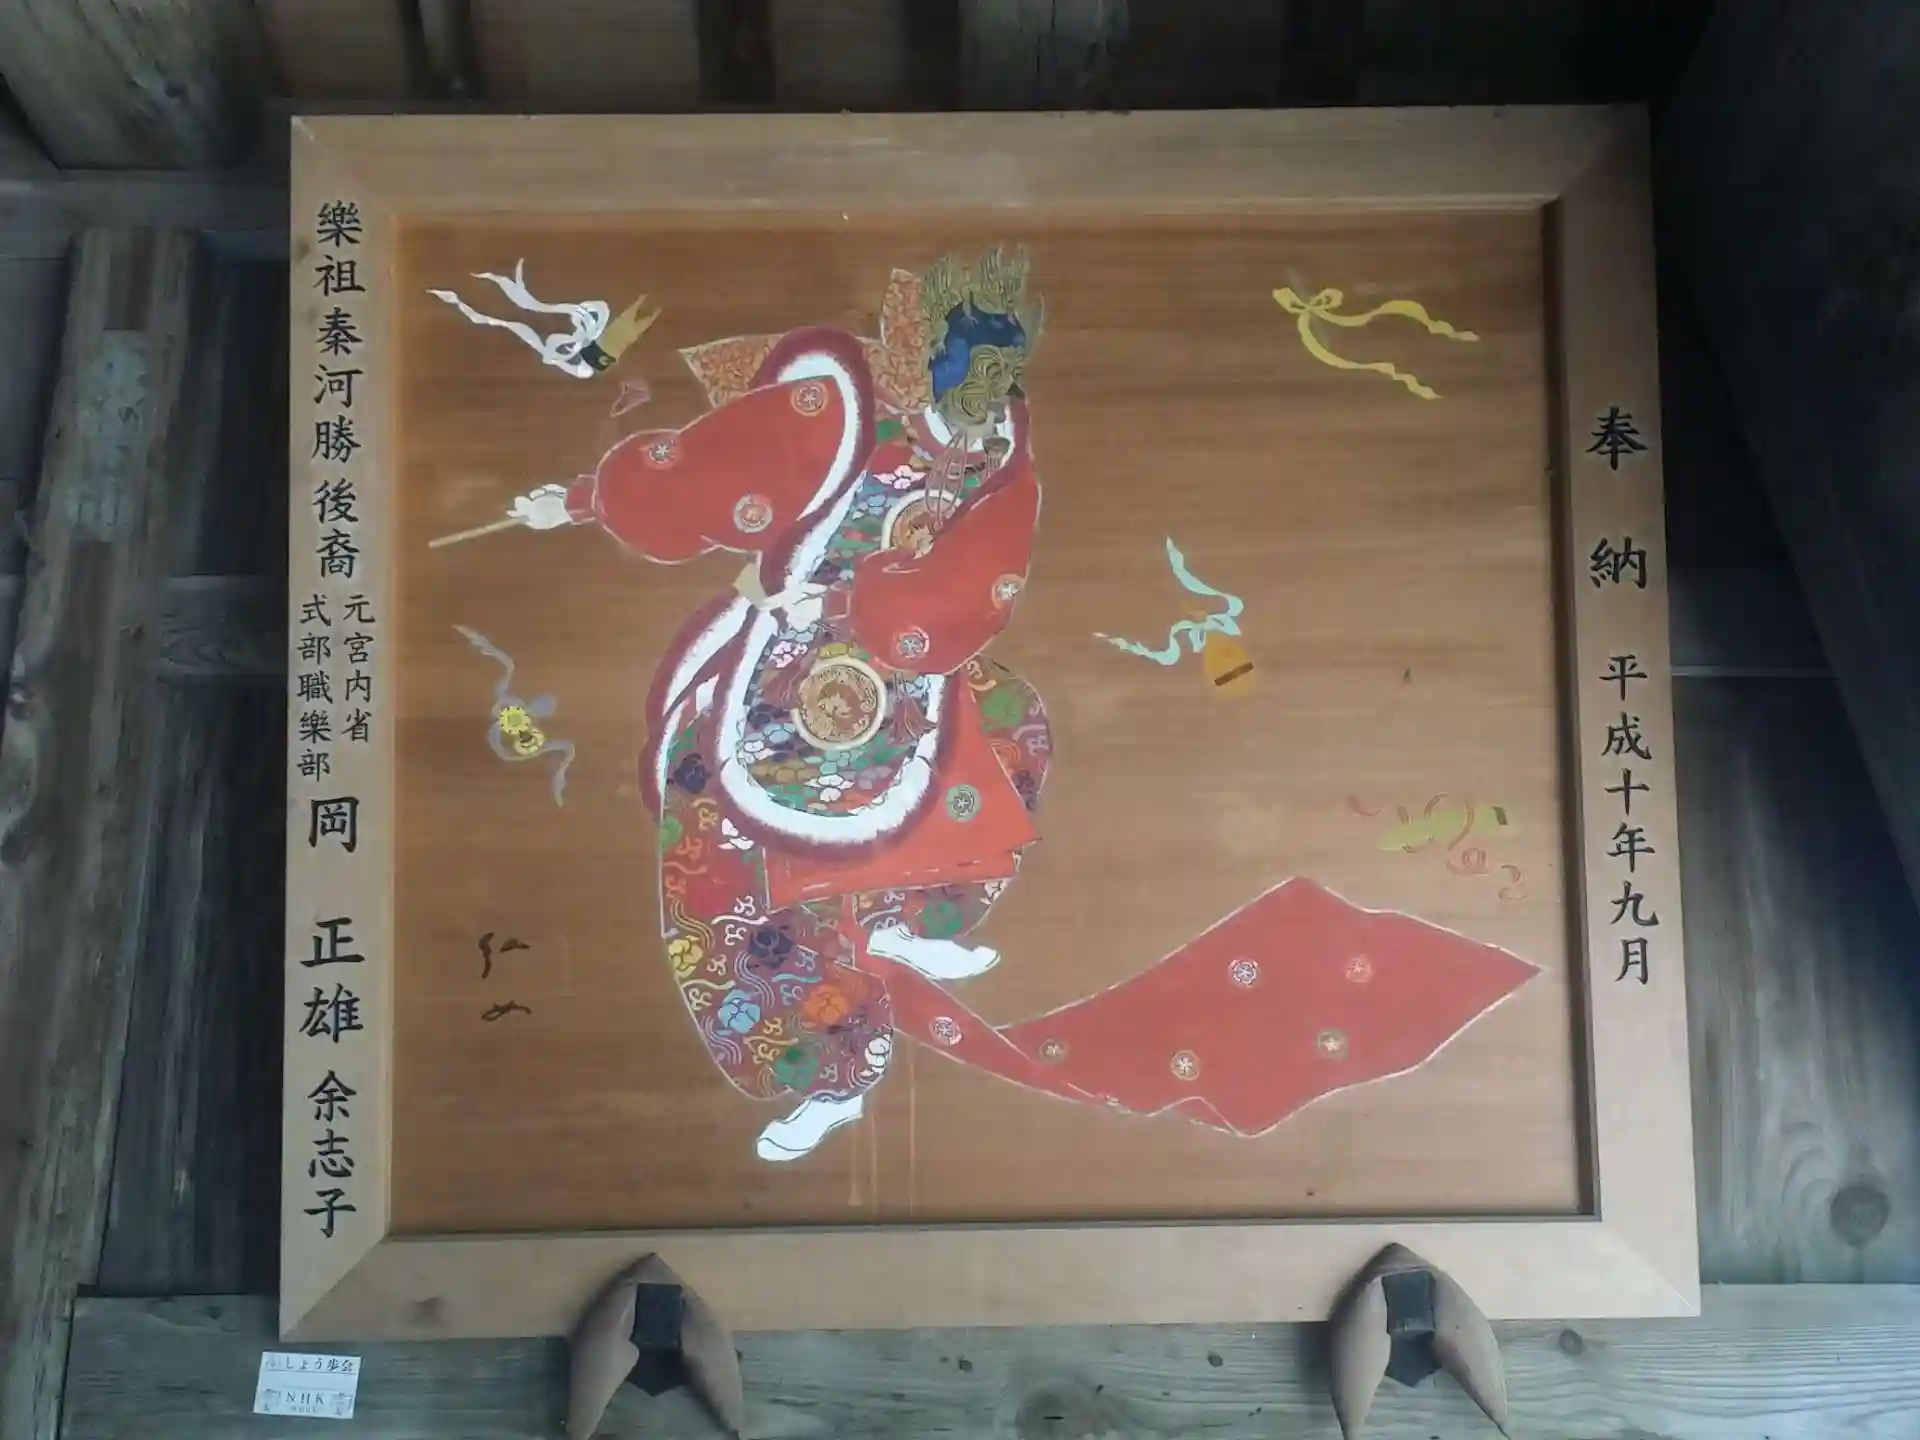 奉納 平成十年九月
樂祖秦河勝後裔 元宮内省
式部職樂部 岡 正雄 余志子
弘め
しょう歩会
NHK